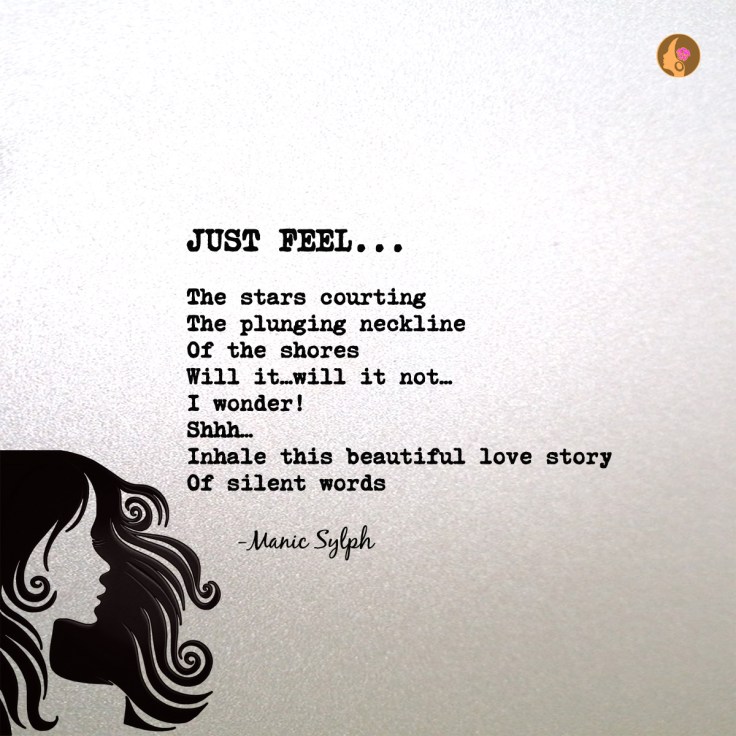 JUST FEEL...
The stars courting
The plunging neckline
Of the shores
Will it…will it not…
I wonder!
Shhh…
Inhale this beautiful love story
Of silent words
-Manic Sylph